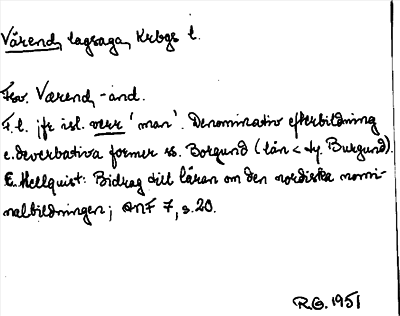 Värend, lagsaga, Krbgs l.
Fsv. Værend, -and.
F.l. jfr isl. verr 'man'. Denominativ efterbildning
e. deverbativa former ss. Borgund (lån < ty. Burgund).
E. Hellquist: Bidrag till läran om den nordiska nomi-
nalbildningen; ANF 7, s. 20.
R.G. 1951